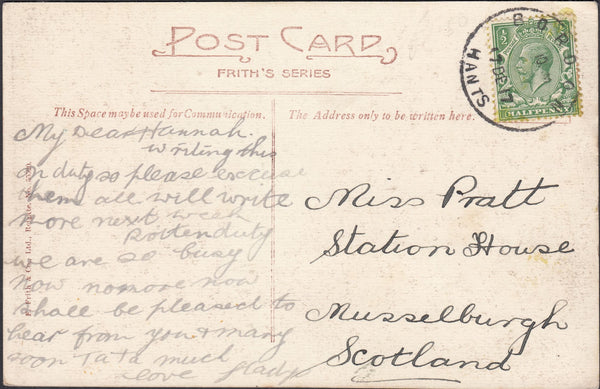 POST CARD
FRITH'S SERIES
This Space may be used for Communication.
The Address only to be written here.
My Dear Hannah.
Writing this
on duty so please excuse
them all will write
more next week
Rotten duty
we are so busy
now no more now
shall be pleased to
hear from you & many
soon Ta Ta much
love Glad
Miss Pratt
Station House
Musselburgh
Scotland
BORDON
HANTS
HALFPENNY